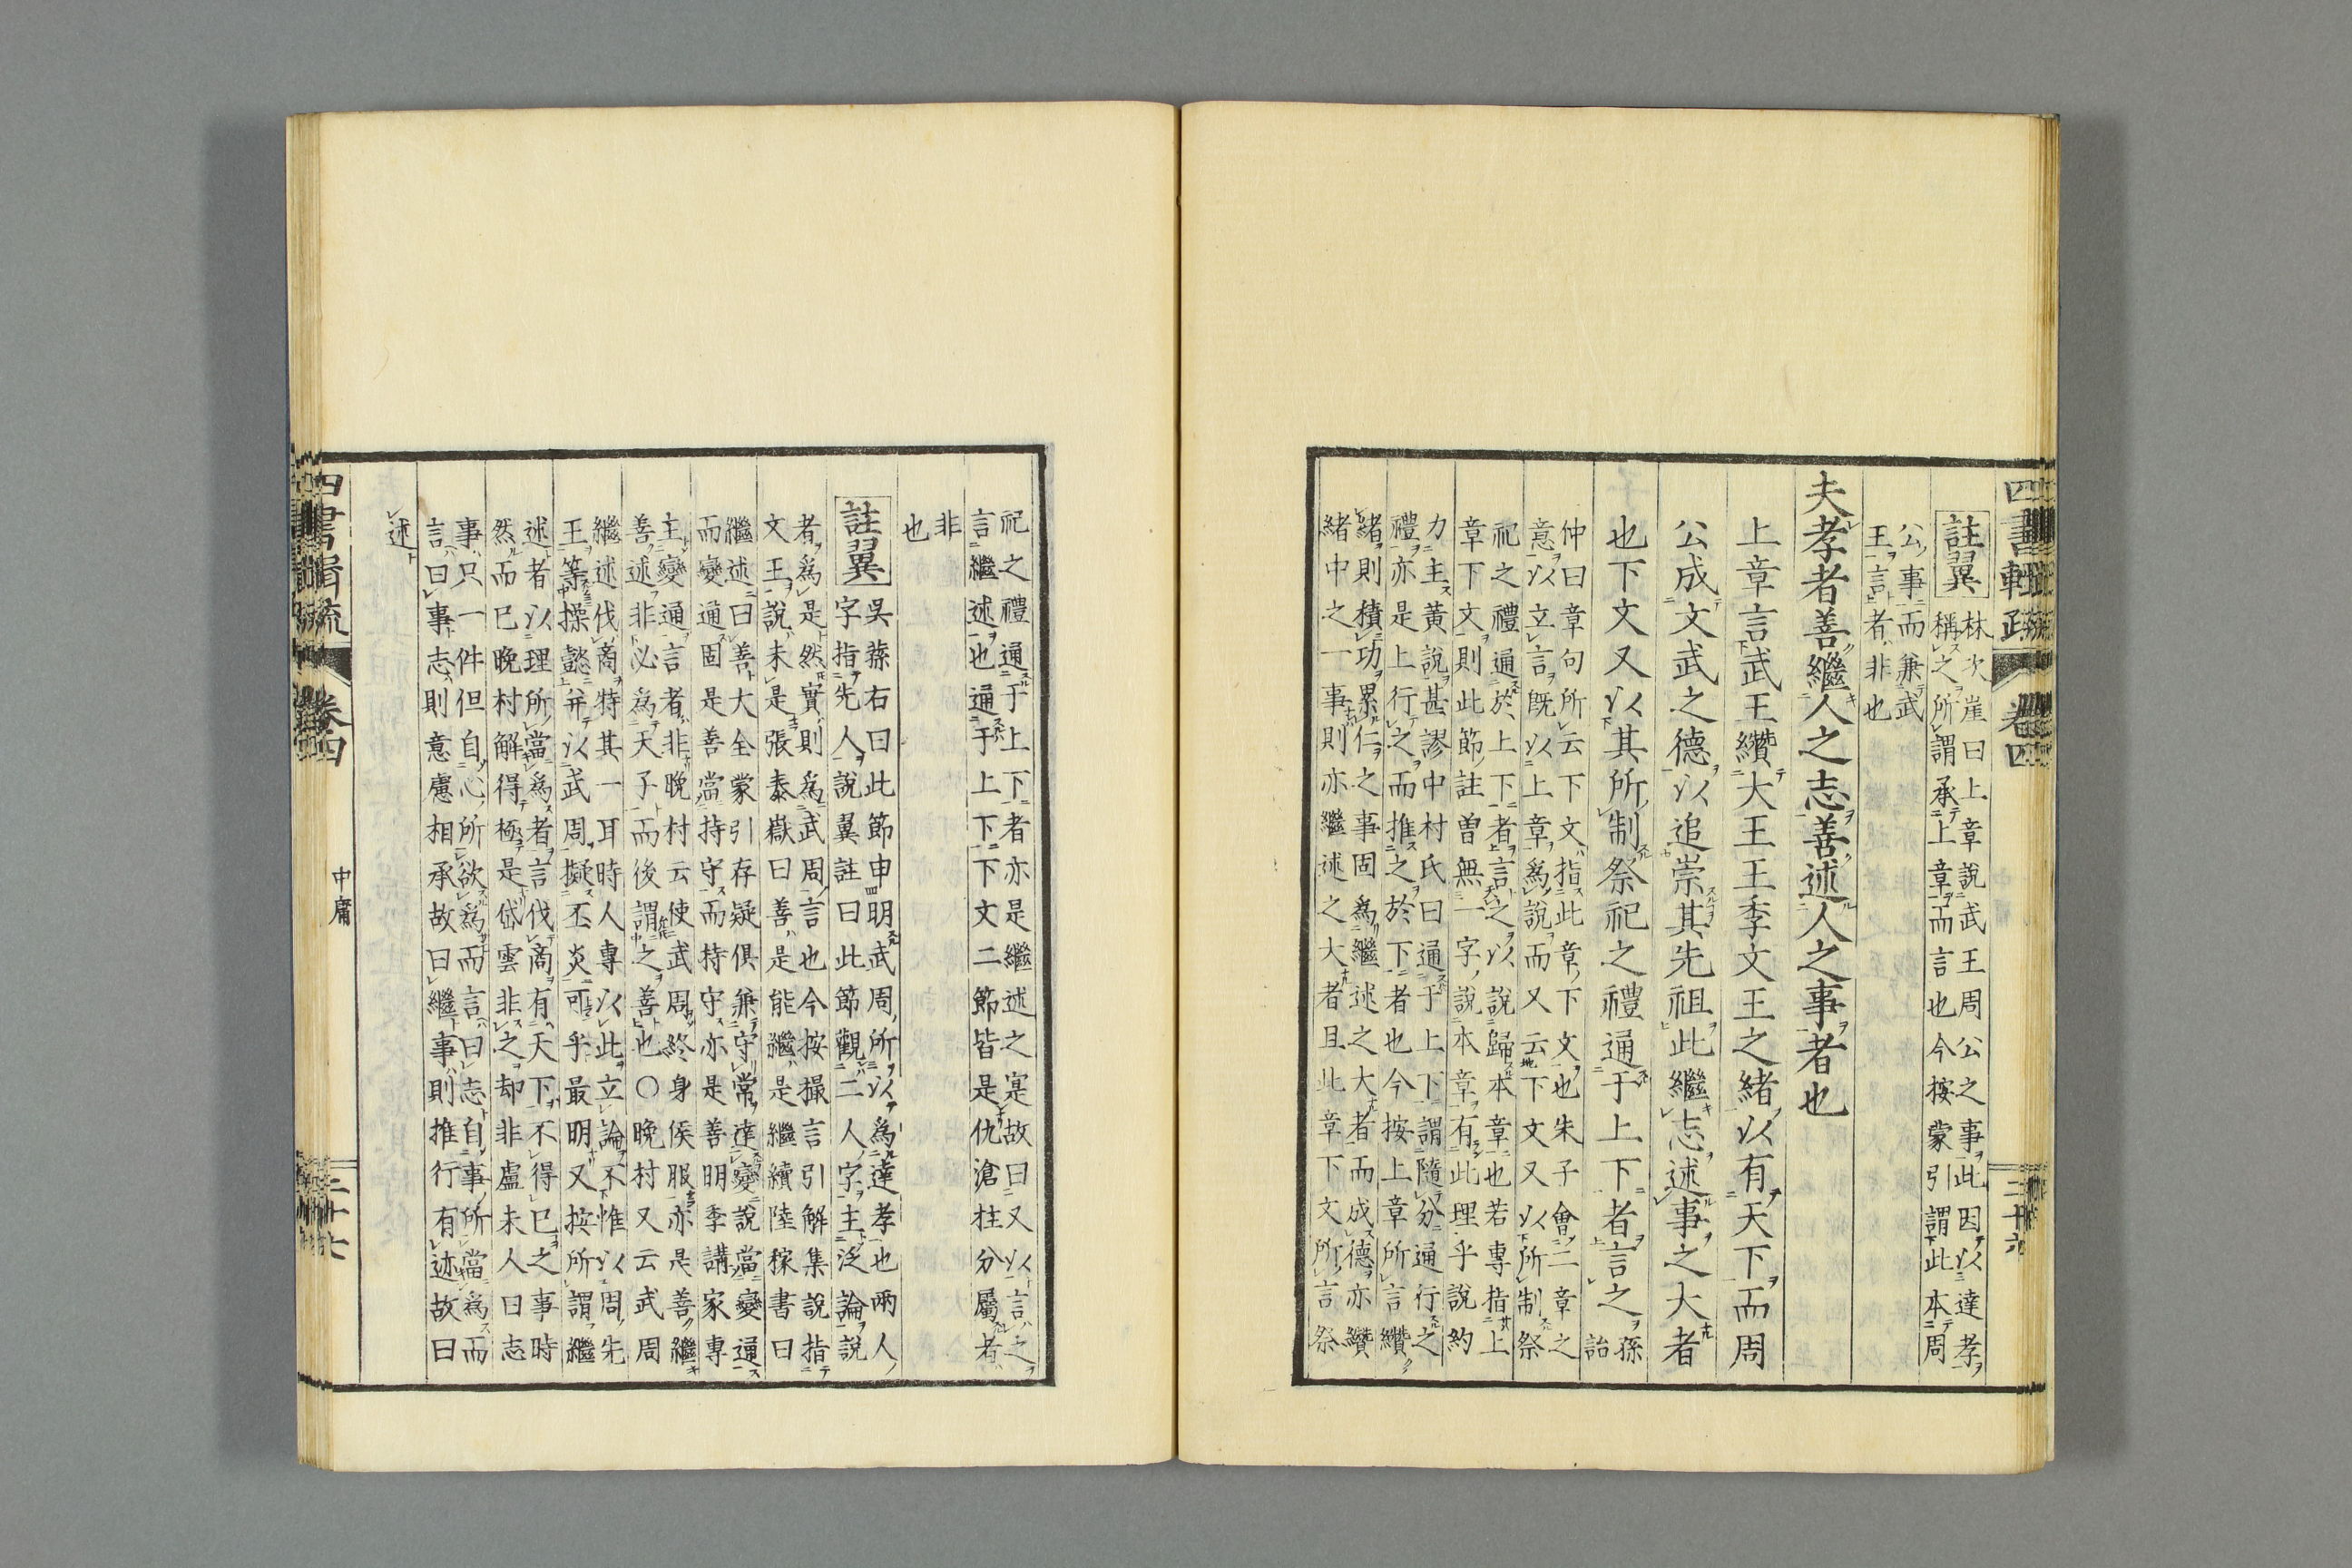 四書輯疏 卷四 二十六
註翼
林次崖曰上章說武王周公之事此因以達孝
稱之所謂承上章而言也今按蒙引謂此本周
公事而兼武
王言者非也
夫孝者善繼人之志善述人之事者也
上章言武王纘大王王季文王之緒以有天下而周
公成文武之德以追崇其先祖此繼志述事之大者
也下文又以其所制祭祀之禮通于上下者言之
孫詒
仲曰章句所云下文指此章下文也朱子會二章之
意以立言既以上章為說而又云下文又以所制祭
祀之禮通於上下者言之以說歸本章也若專指上
章下文則此節註曾無一字說本章有此理乎說約
力主黃說甚謬中村氏曰通于上下謂隨分通行之
禮亦是上行之而推之於下者也今按上章所言纘
緒則積功累仁之事固為繼述之大者而成德亦纘
緒中之一事則亦繼述之大者且此章下文所言祭
祀之禮通于上下者亦是繼述之寔故曰又以言之
言繼述也通于上下下文二節皆是仇滄柱分屬者
非
也
註翼
吳蓀右曰此節申明武周所以為達孝也兩人
字指先人說翼註曰此節觀二人字主泛論說
者為是然實則為武周言也今按撮言引解集說指
文王說未是張泰嶽曰善是能繼是繼續陸稼書曰
繼述曰善大全蒙引存疑俱兼守常達變說當變通
而變通固是善當持守而持守亦是善明季講家專
主變通言者非晚村云使武周終身侯服亦是善繼
善述非必為天子而後謂之善也○晚村又云武周
繼述伐商特其一耳時人專以此立論不惟以周先
王等操懿并以武周擬丕炎可乎最明又按所謂繼
述者以理所當為者言伐商有天下不得已之事時
然而已晚村解得極是岱雲非之却非盧未人曰志
事只一件但自心所欲為而言曰志自事所當為而
言曰事志則意慮相承故曰繼事則推行有迹故曰
述
四書輯疏 卷四 中庸 二十七